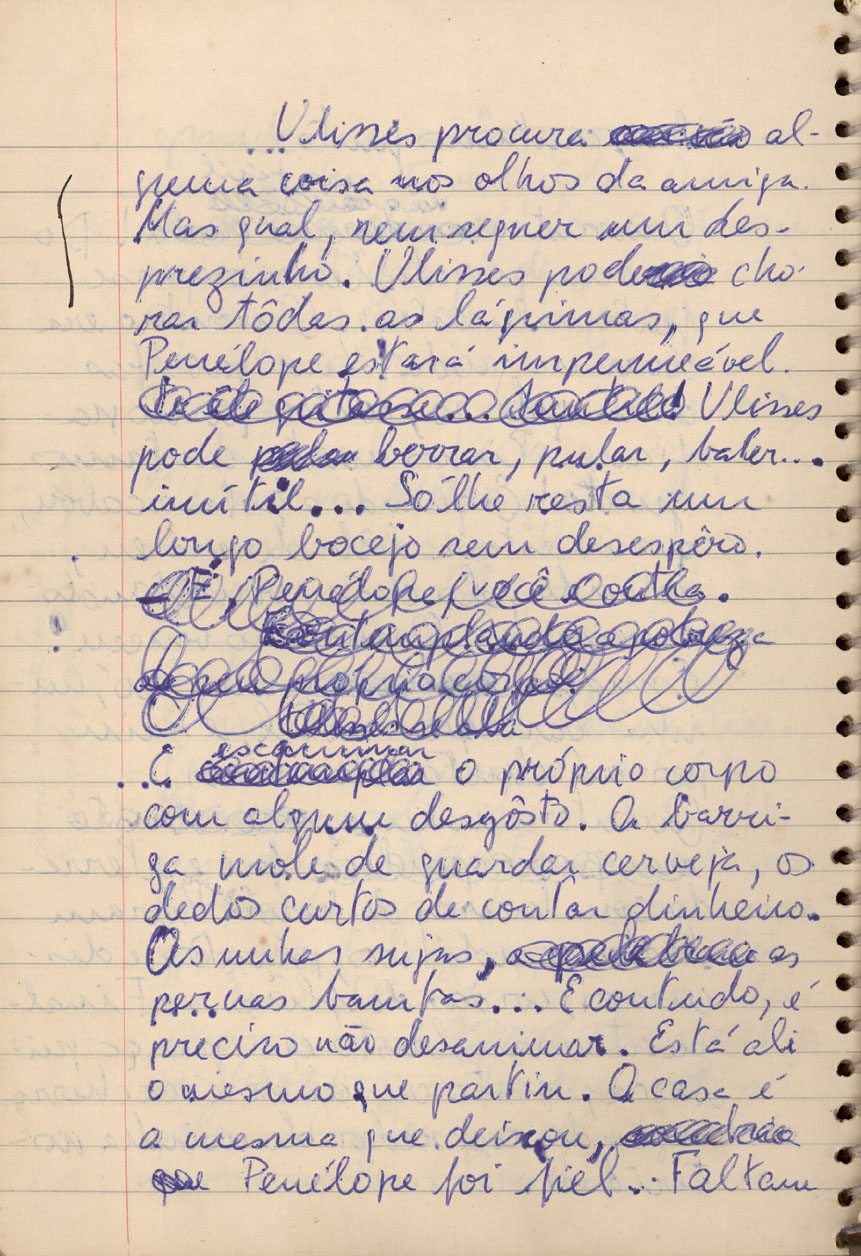 ...Ulisses procura al-
guma coisa nos olhos da amiga.
Mas qual, nem sequer um des-
prezinho. Ulisses pode cho-
rar tôdas as lágrimas, que
Penélope estará impermeável.
Inútil! Ulisses
pode berrar, pular, bater...
inútil... Só lhe resta um
longo bocejo sem desespêro.
— É, Penélope, você é outra.
Contemplando a pobreza
de seu próprio corpo
Ulisses
... E escarminar o próprio corpo
com algum desgôsto. A barri-
ga mole de guardar cerveja, os
dedos curtos de contar dinheiro.
As unhas sujas, as
pernas bambas... E contudo, é
preciso não desanimar. Está ali
o mesmo que partiu. A casa é
a mesma que deixou,
que Penélope foi fiel... Faltam